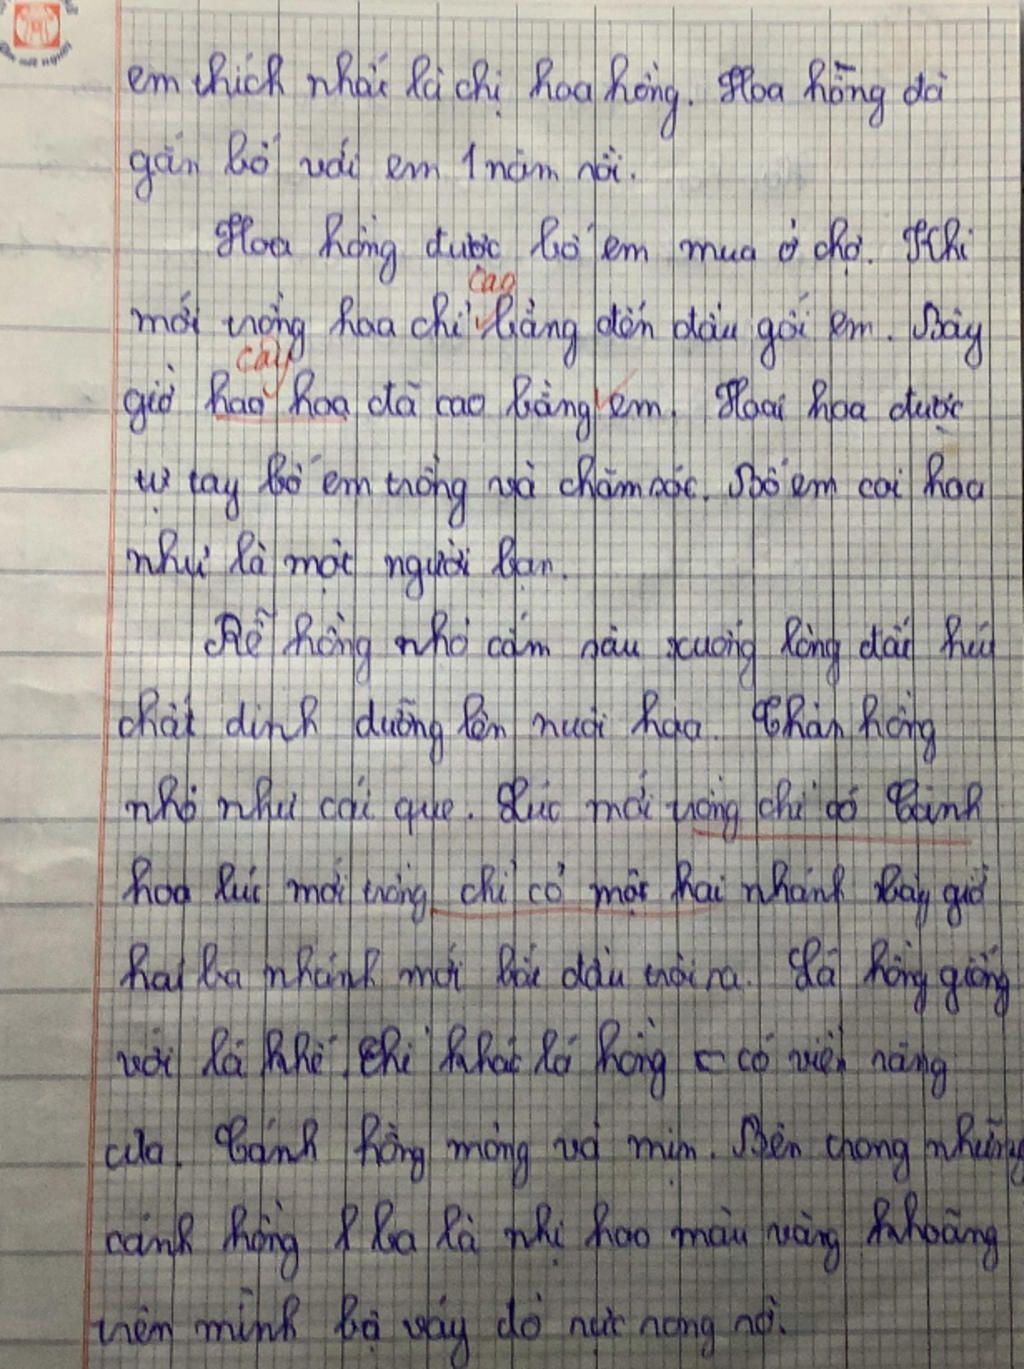 em thích nhất là chị hoa hồng. Hoa hồng đã
gắn bó với em 1 năm rồi.
Hoa hồng được bố em mua ở chợ. Khi
cao
mới trồng hoa chỉ bằng đến đầu gối em. Bây
cây
giờ hao hoa đã cao bằng em. Hoai hoa được
tự tay bố em trồng và chăm sóc. Bố em coi hoa
như là một người bạn.
Rễ hồng nhỏ cắm sâu xuống lòng đất hút
chất dinh dưỡng lên nuôi hoa. Thân hồng
nhỏ như cái que. Lúc mới trồng chỉ có Cành
hoa lúc mới trồng chỉ có một hai nhánh bây giờ
hai ba nhánh mới bắt đầu trồi ra. Lá hồng giống
với lá khế chỉ khác lá hồng c có viền răng
cưa. Cánh hồng mỏng và mịn. Bên chong những
cánh hồng là nhị hao màu vàng khoãng
trên mình bộ váy đỏ rực rong rỡ.